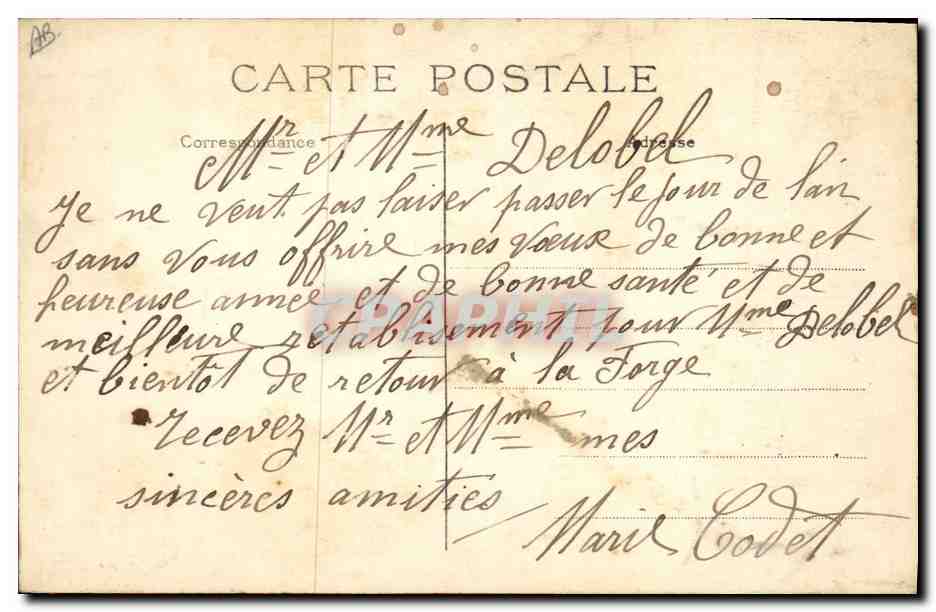 AB.
CARTE POSTALE
Correspondance
Adresse
Mr et Mme Delobel
Je ne veut pas laiser passer le jour de l'an
sans vous offrire mes vœux de bonne et
heureuse année et de bonne santé et de
meilleure retablisement pour Mme Delobel
et bientôt de retour à la Forge
recevez Mr et Mme mes
sincères amitiés
Marie Codet